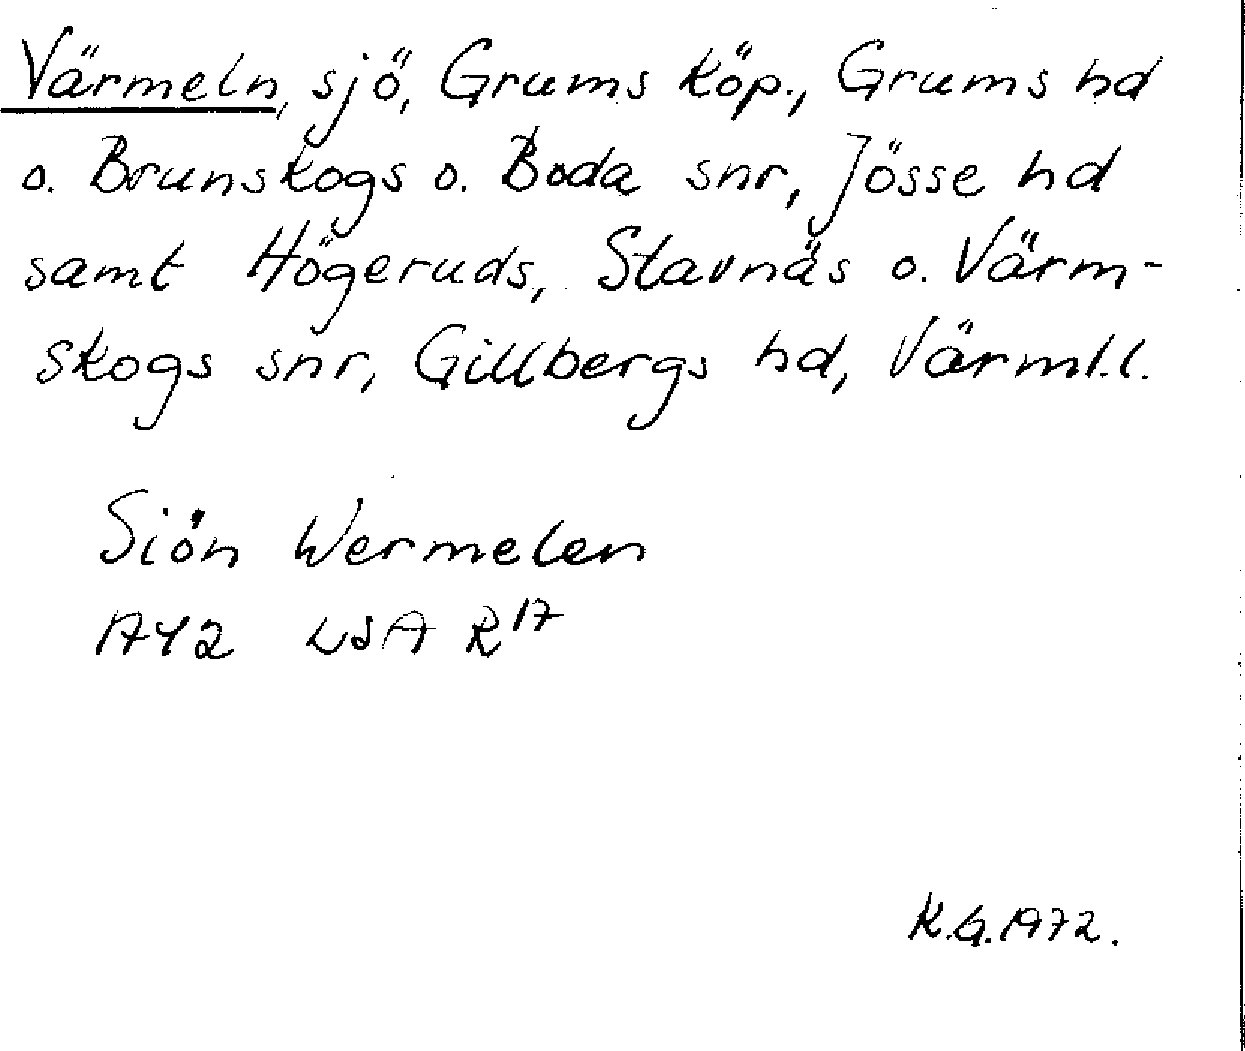 Värmeln, sjö, Grums köp., Grums hd
o. Brunskogs o. Boda snr, Jösse hd
samt Högeruds, Stavnäs o. Värm-
skogs snr, Gillbergs hd, Värml.l.
Siön Wermelen
1742 LSA R17
K.G.1972.